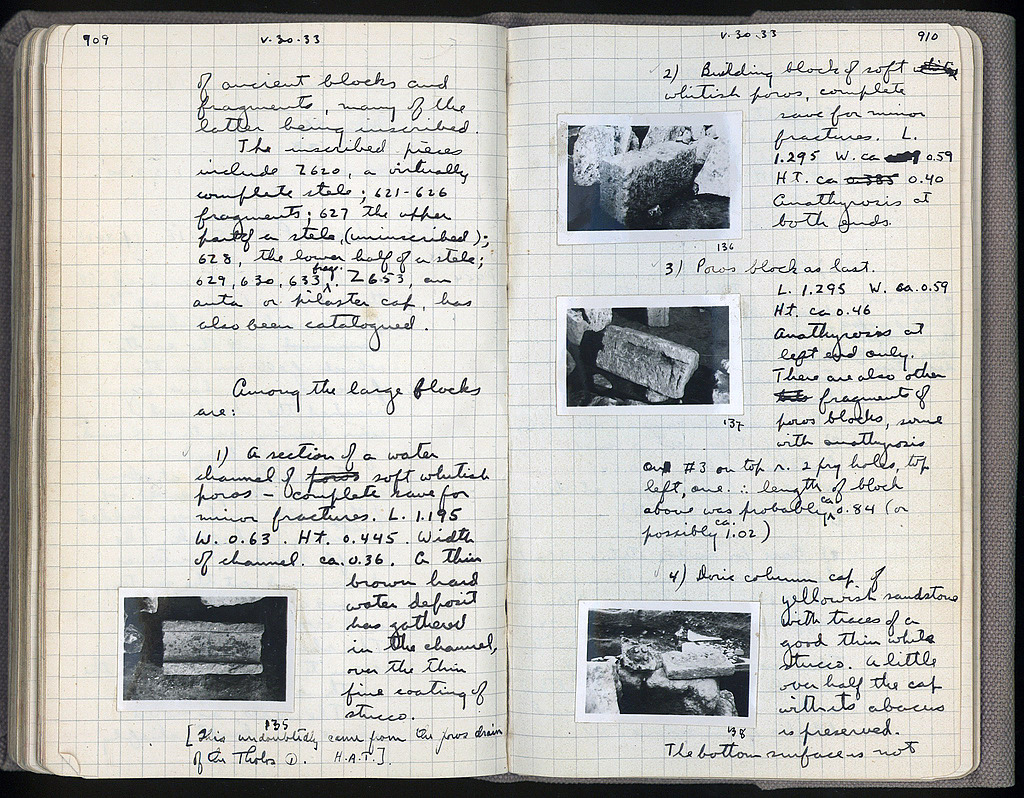 909
V. 30. 33
of ancient blocks and
fragments, many of the
latter being inscribed.
The inscribed pieces
include I 620, a virtually
complete stele; 621-626
fragments; 627 the upper
part of a stele, (uninscribed);
628, the lower half of a stele;
629, 630, 633 frag. I 653, an
anta or pilaster cap, has
also been catalogued.
Among the large blocks
are:
1) A section of a water
channel of poros soft whitish
poros - complete save for
minor fractures. L. 1.195
W. 0.63. Ht. 0.445. Width
of channel. ca. 0.36. A thin
brown hard
water deposit
has gathered
in the channel,
over the thin
fine coating of
stucco.
135
[This undoubtedly came from the poros drain
of the Tholos. H.A.T.].
V. 30. 33
910
2) Building block of soft
whitish poros, complete
save for minor
fractures. L.
1.295 W. ca 0.59
Ht. ca 0.385 0.40
Anathyrosis at
both ends.
136
3) Poros block as last.
L. 1.295 W. ca. 0.59
Ht. ca 0.46
Anathyrosis at
left end only.
There are also other
fragments of
poros blocks, some
with anathyrosis
137
On #3 on top r. 2 pry holes, top
left, one. ∴ length of block
above was probably ca 0.84 (or
possibly ca. 1.02)
4) Doric column cap. of
yellowish sandstone
with traces of a
good thin white
stucco. A little
over half the cap
with its abacus
is preserved.
138
The bottom surface is not